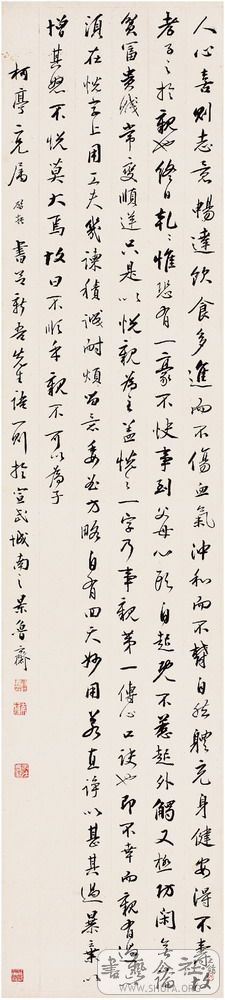 人心喜則志意暢達飲食多進而不傷血氣沖和而不鬱自然體充身健安得不壽故
孝子之於親也終日乾乾惟恐有一豪不快事到父母心頭自起既不惹起外觸又極防閑無論
貧富貴賤常變順逆只是以悅親為主蓋悅之一字乃事親第一傳心口訣也即不幸而親有過
須在悅字上用工夫幾諫積誠耐煩留意委曲方略自有回天妙用若直諍以甚其過暴棄以
增其怒不悅莫大焉故曰不順乎親不可以為子
柯亭二兄屬 書呂新吾先生語一則於宣武城南之景魯齋
書藝公社
WWW.SHUFA.ORG